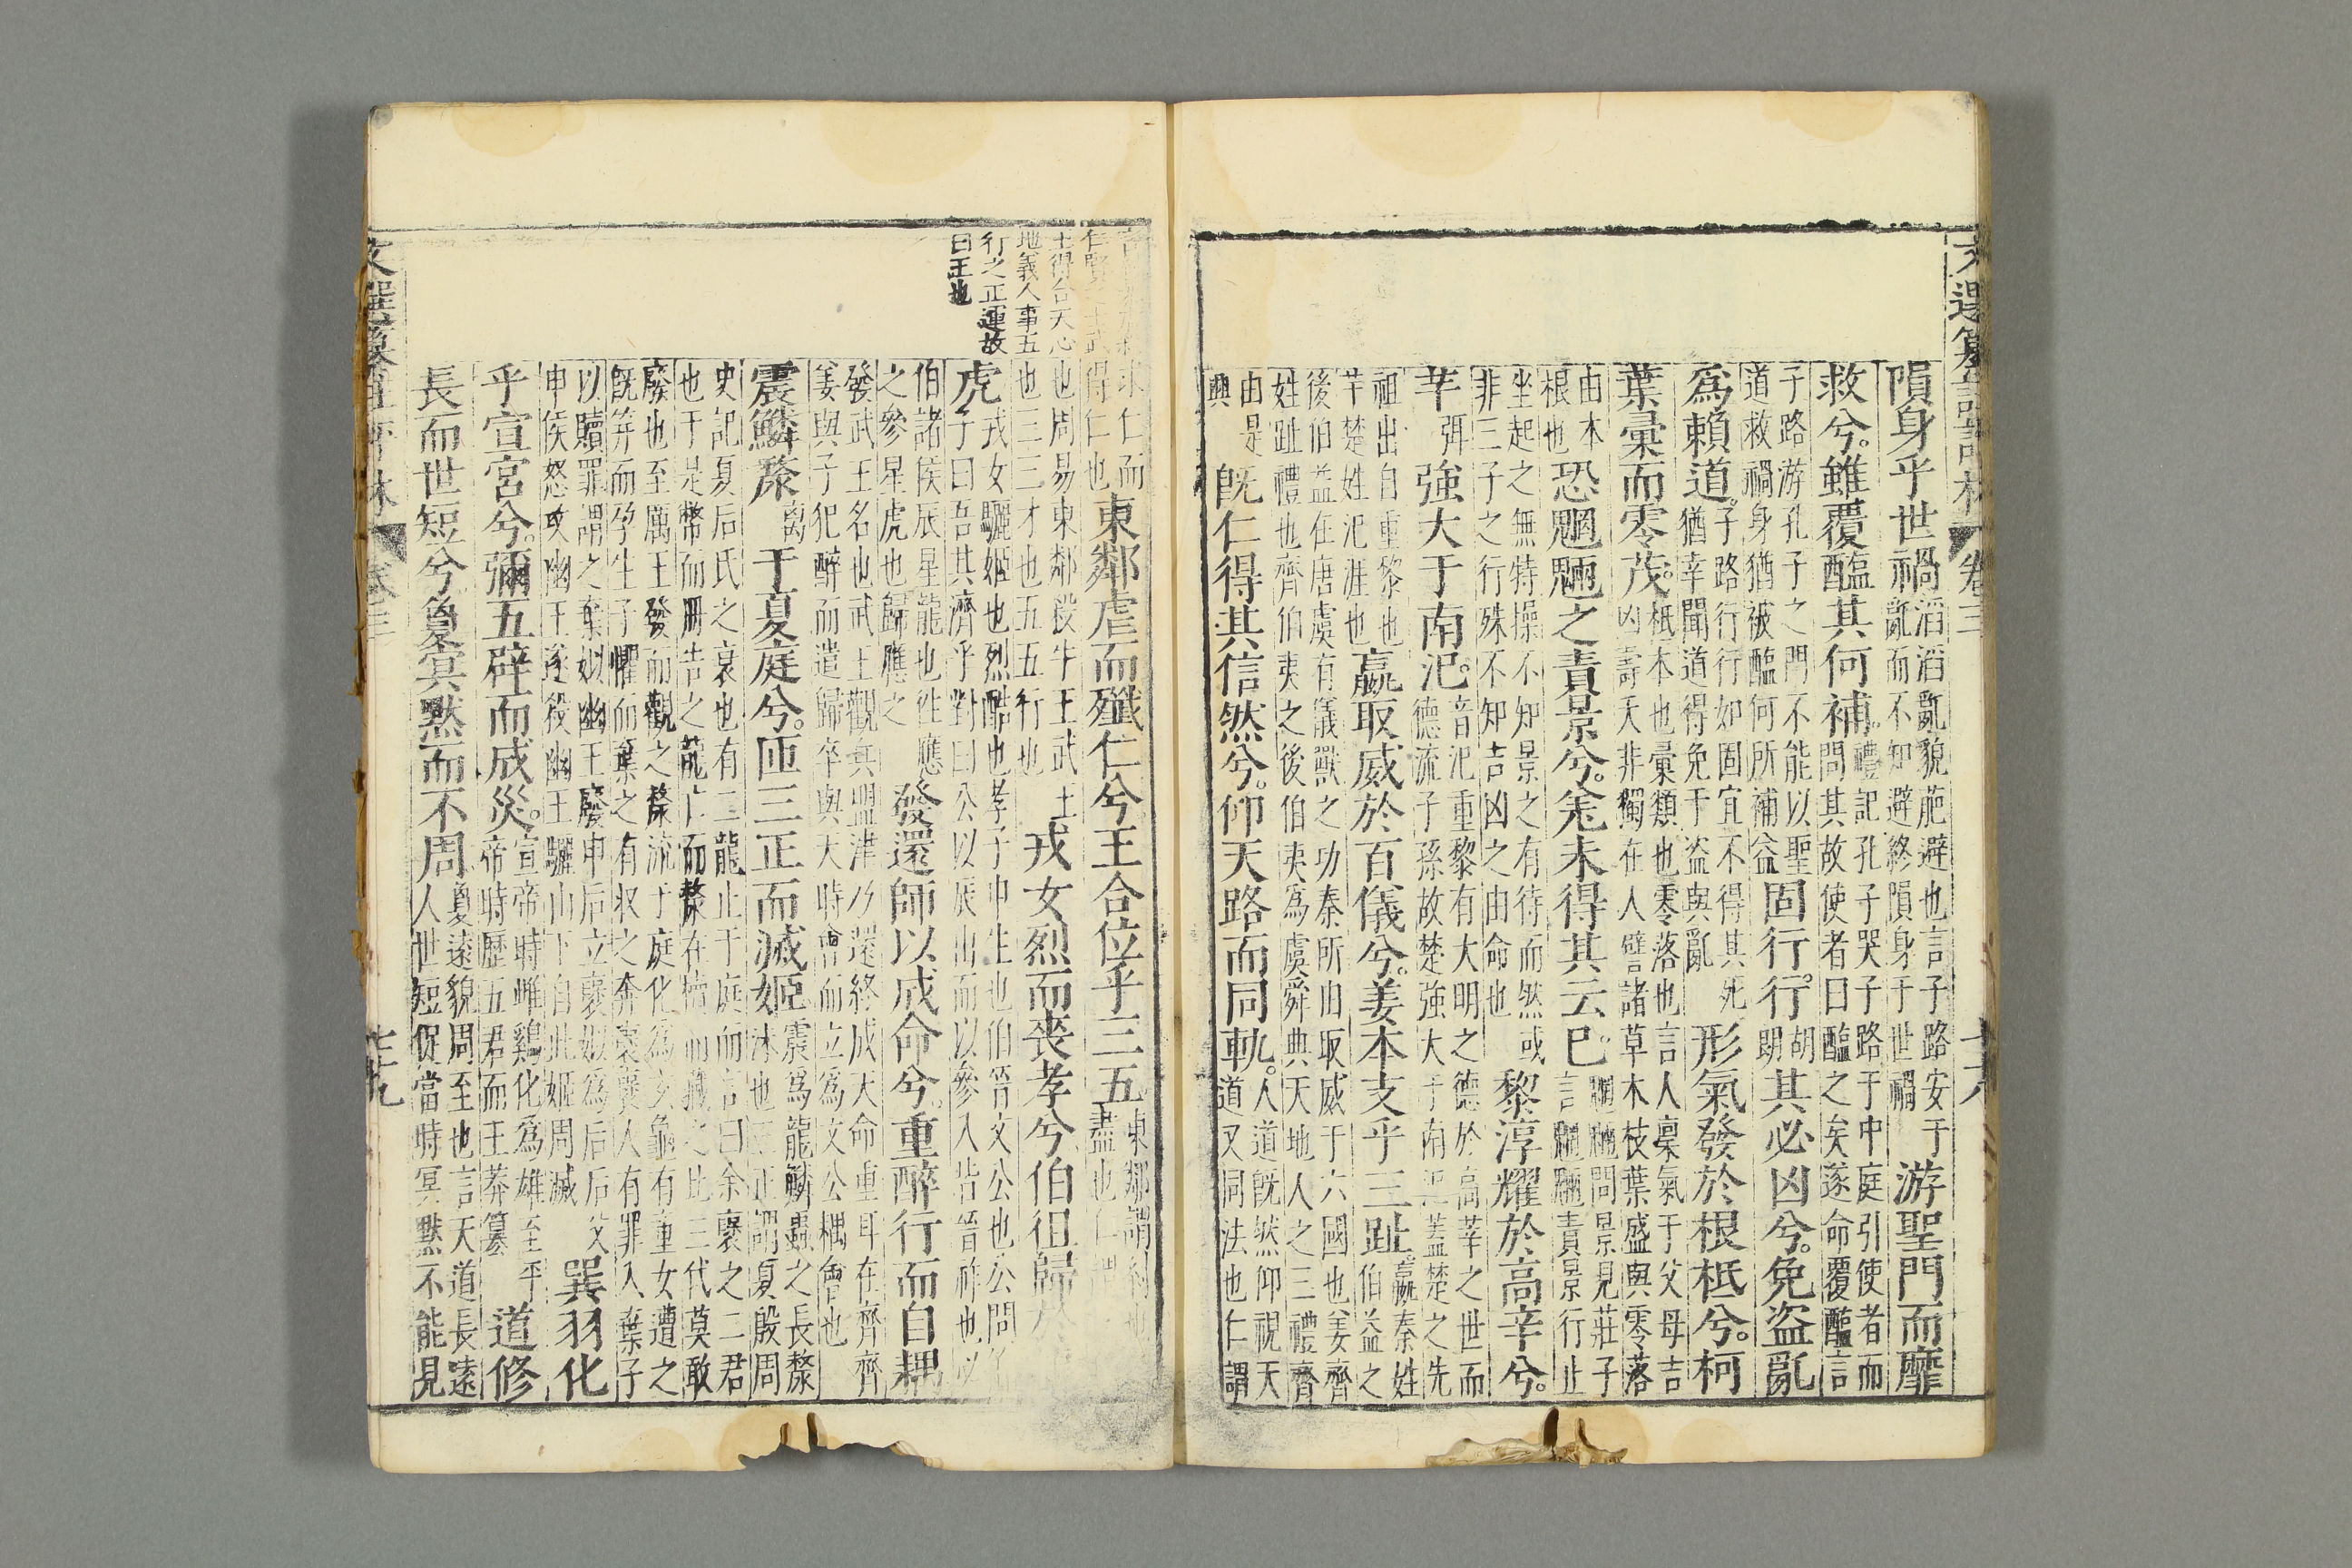 隕身乎世禍滔滔亂貌萉避也言子路安于亂而不知避終隕身于世禍游聖門而靡
救兮雖覆醢其何補禮記孔子哭子路于中庭引使者而問其故使者曰醢之矣遂命覆醢言
子路游孔子之門不能以聖道救禍身猶被醢何所補益固行行胡朗其必凶兮免盜亂
爲賴道子路行行如固宜不得其死猶幸聞道得免于盜與亂形氣發於根柢兮柯
葉彙而零茂柢本也彙類也零落也言人稟氣于父母吉凶壽夭非獨在人譬諸草木枝葉盛與零落
由本根也恐魍魎之責景兮羌未得其云已魍魎問景見莊子言魍魎責景行止
坐起之無特操不知景之有待而然或非三子之行殊不知吉凶之由命也黎淳耀於高辛兮
芈弭強大于南汜音汜重黎有大明之德於高辛之世而德流子孫故楚強大于南汜蓋楚之先
祖出自重黎也芊楚姓汜涯也嬴取威於百儀兮姜本支乎三趾嬴秦姓伯益之
後伯益在唐虞有儀獸之功秦所由取威于六國也姜齊姓趾禮也齊伯夷之後伯夷爲虞舜典天地人之三禮齊
由是興既仁得其信然兮仰天路而同軌人道既然仰視天道又同法也仁謂
求仁而得仁也東鄰虐而殲仁兮王合位乎三五東鄰謂紂也盡也仁謂
也周易東鄰殺牛王武王也三三才也五五行也戎女烈而喪孝兮伯徂歸
虎戎女驪姬也烈酷也孝子申生也伯晉文公也公問子曰吾其濟乎對曰公以辰出而以參入皆晉祥也必
伯諸侯辰星龍也往應之參星虎也歸應之發還師以成命兮重醉行而自耦
發武王名也武王觀兵盟津乃還終成天命重耳在齊齊姜與子犯醉而遣歸卒與天時會而立爲文公耦會也
震鱗漦离于夏庭兮匝三正而滅姬震爲龍鱗蟲之長漦沫也三正謂夏殷周
史記夏后氏之衰也有二龍止于庭而言曰余襃之二君也于是幣而冊告之龍亡而漦在櫝而藏之比三代莫敢
發也至厲王發而觀之漦流于庭化爲玄龜有童女遭之既笄而孕生子懼而棄之有收之奔襃襃人有罪入棄子
以贖罪謂之襃姒幽王廢申后立襃姒爲后后父申侯怒攻幽王遂殺幽王驪山下自此姬周滅巽羽化
乎宣宮兮彌五辟而成災宣帝時雌鷄化爲雄至平帝時歷五君而王莽篡道修
長而世短兮夐冥默而不周夐遠貌周至也言天道長遠人世短促當時冥默不能見
地義人事五
行之正運故
曰王也
卷三